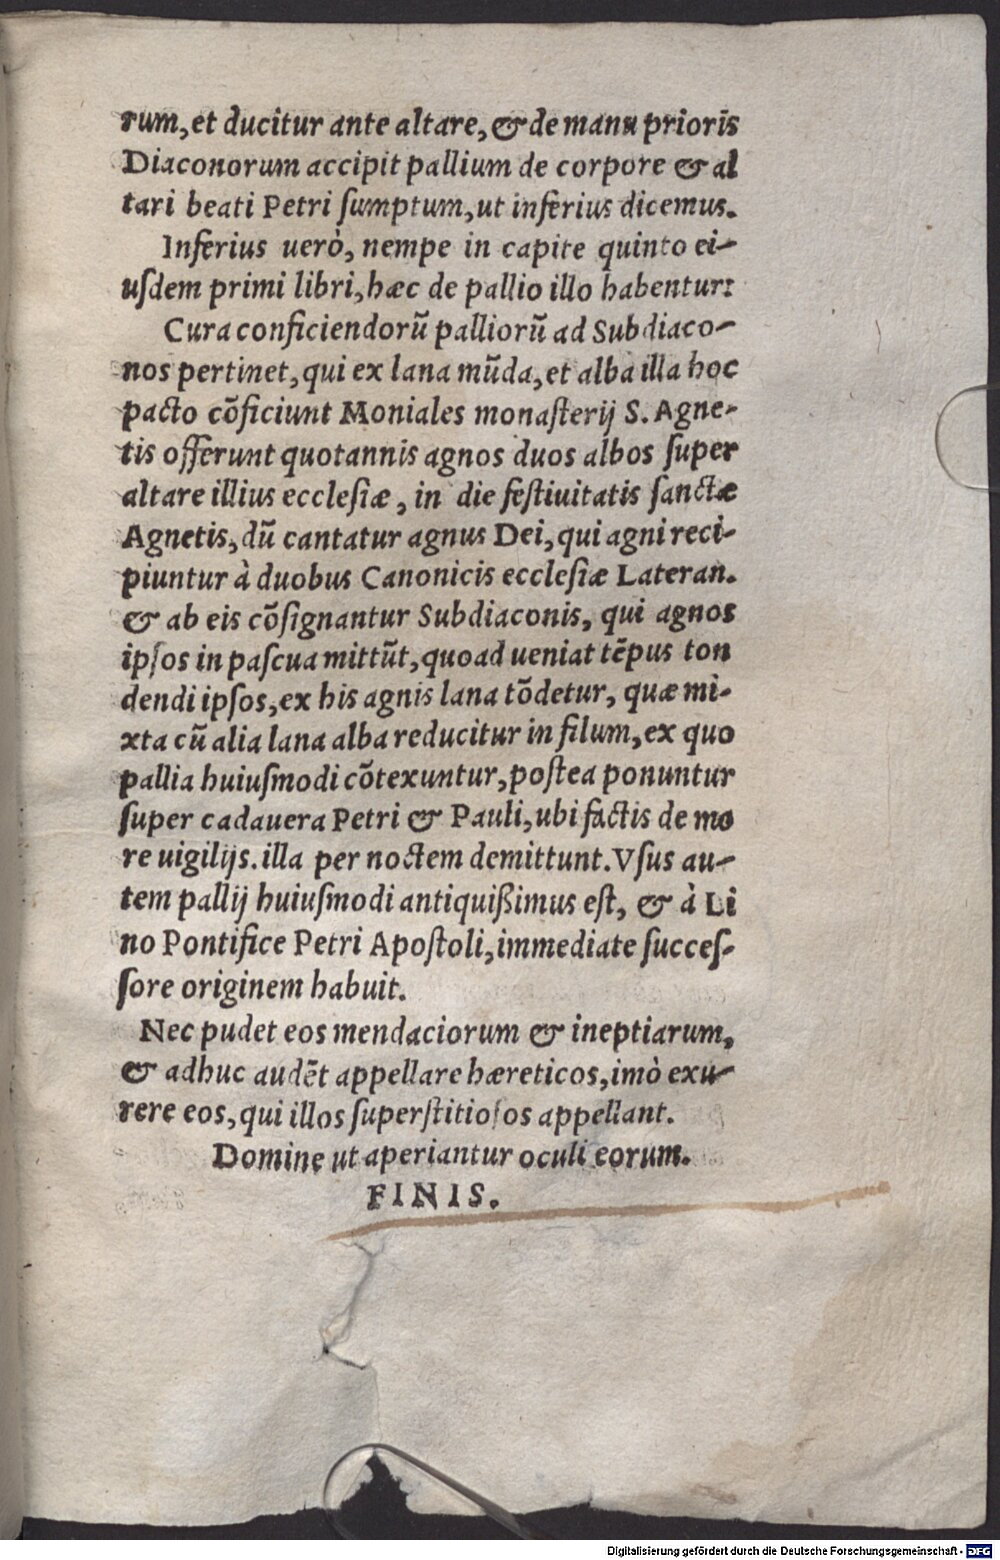 rum, et ducitur ante altare, & de manu prioris
Diaconorum accipit pallium de corpore & al
tari beati Petri ſumptum, ut inferius dicemus.
Inferius uerò, nempe in capite quinto ei-
uſdem primi libri, hæc de pallio illo habentur:
Cura conficiendorũ palliorũ ad Subdiaco-
nos pertinet, qui ex lana mũda, et alba illa hoc
pacto cõficiunt Moniales monaſterij S. Agne-
tis offerunt quotannis agnos duos albos ſuper
altare illius eccleſiæ, in die feſtiuitatis ſanctæ
Agnetis, dũ cantatur agnus Dei, qui agni reci-
piuntur à duobus Canonicis eccleſiæ Lateran.
& ab eis cõſignantur Subdiaconis, qui agnos
ipſos in paſcua mittũt, quoad ueniat tẽpus ton
dendi ipſos, ex his agnis lana tõdetur, quæ mi-
xta cũ alia lana alba reducitur in filum, ex quo
pallia huiuſmodi cõtexuntur, poſtea ponuntur
ſuper cadauera Petri & Pauli, ubi factis de mo
re uigilijs. illa per noctem demittunt. Vſus au-
tem pallij huiuſmodi antiquißimus eſt, & à Li
no Pontifice Petri Apoſtoli, immediate ſucceſ-
ſore originem habuit.
Nec pudet eos mendaciorum & ineptiarum,
& adhuc audẽt appellare hæreticos, imò exu-
rere eos, qui illos ſuperſtitioſos appellant.
Domine ut aperiantur oculi eorum.
FINIS.
Digitalisierung gefördert durch die Deutsche Forschungsgemeinschaft - DFG